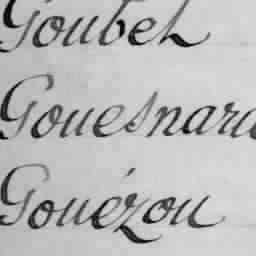 Goubet
Gouesnard
Gouézou